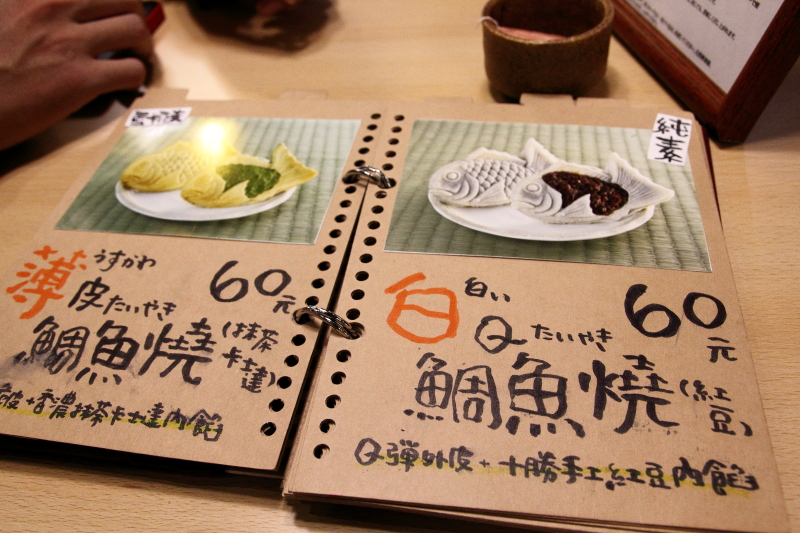 薄皮
うすかわ
たいやき
60元
鯛魚燒(抹茶卡士達)
皮+香濃抹茶卡士達內餡
純素
白Q
白い
たいやき
60元
鯛魚燒(紅豆)
Q彈外皮+十勝手工紅豆內餡